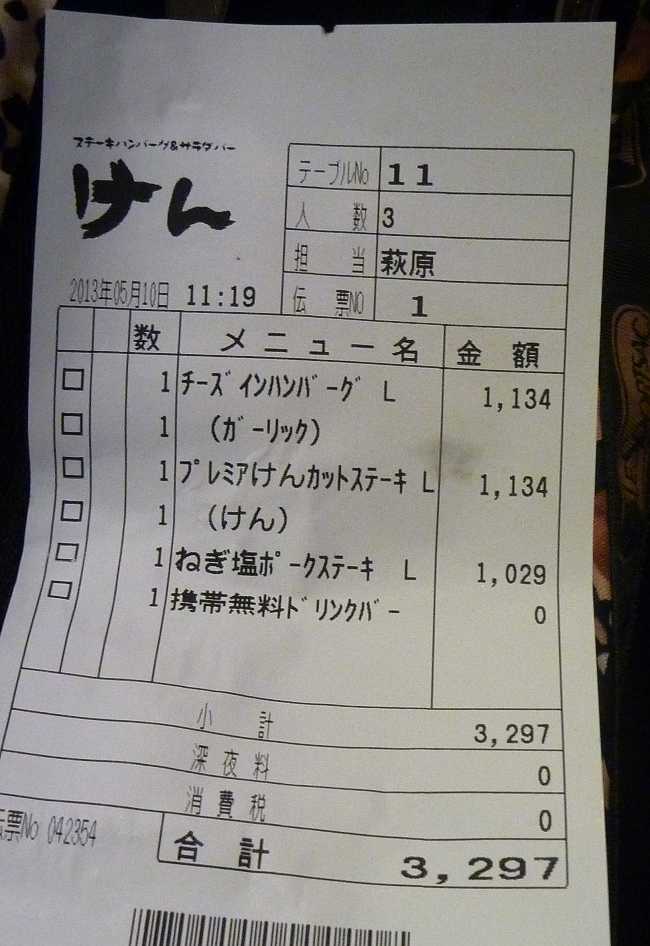 ステーキハンバーグ&サラダバー
けん
テーブルNo 11
人数 3
担当 萩原
2013年05月10日 11:19
伝票NO 1
数 メニュー名 金額
1 ﾁｰｽﾞｲﾝﾊﾝﾊﾞｰｸﾞ L 1,134
1 (ｶﾞｰﾘｯｸ)
1 ﾌﾟﾚﾐｱけんｶｯﾄｽﾃｰｷ L 1,134
1 (けん)
1 ねぎ塩ﾎﾟｰｸｽﾃｰｷ L 1,029
1 携帯無料ﾄﾞﾘﾝｸﾊﾞｰ 0
小計 3,297
深夜料 0
消費税 0
伝票No 042354
合計 3,297